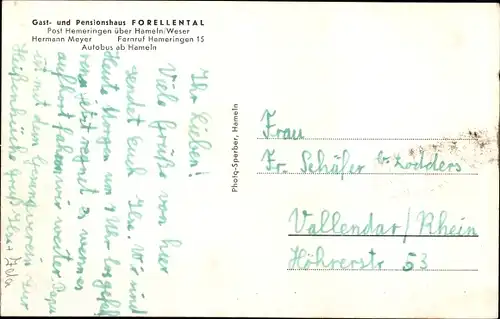 Gast- und Pensionshaus FORELLENTAL
Post Hemeringen über Hameln/Weser
Hermann Meyer Fernruf Hemeringen 15
Autobus ab Hameln
Ihr Lieben!
Viele Grüße von hier
sendet Euch Ilse. Wir sind
heute Morgen um 7 Uhr los gefah
ren jetzt regnet es wenn es
aufhört fahren wir weiter. Papa
ist mit dem Gesangverein zur
gruß Ilse + Ida
Photo-Sperber, Hameln
Frau
Fr. Schäfer b. Lodders
Vallendar/Rhein
Höhrerstr 53